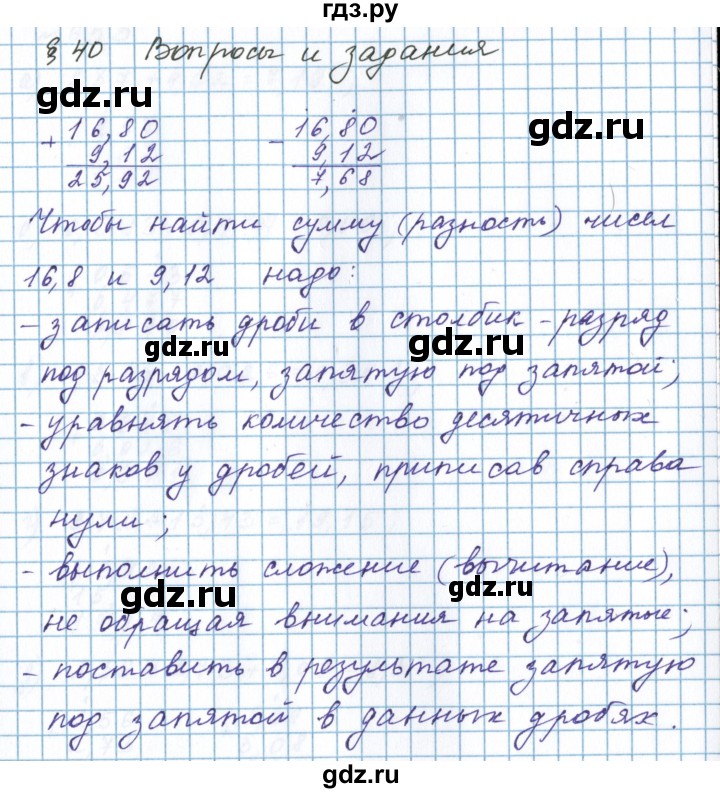 гдз.ру
§ 40 Вопросы и задания
gdz.ru
gdz.ru
+ 16,80
9,12
25,92
- 16,80
9,12
7,68
Чтобы найти сумму (разность) чисел
16,8 и 9,12 надо:
- записать дроби в столбик - разряд
gdz.ru
gdz.ru
под разрядом, запятую под запятой;
- уравнять количество десятичных
знаков у дробей, приписав справа
нули;
- выполнить сложение (вычитание),
gdz.ru
gdz.ru
не обращая внимания на запятые;
- поставить в результате запятую
под запятой в данных дробях.
gdz.ru